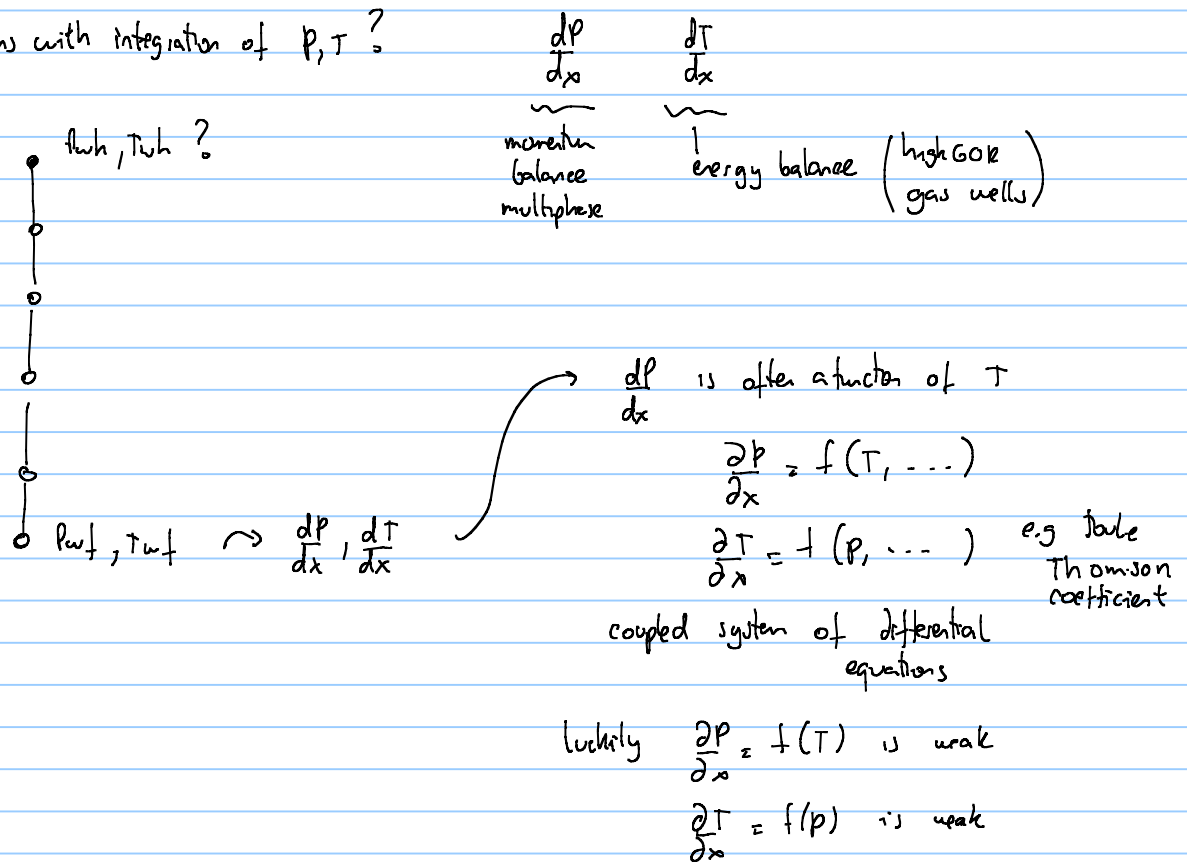 ns with integration of P, T ?
dP/dx dT/dx
momentum
balance
multiphase
energy balance (high GOR
gas wells)
Pwh, Twh ?
dP/dx is often a function of T
∂P/∂x = f(T, ....)
∂T/∂x = f(p, ... ) e.g Joule
Thomson
coefficient
Pwf, Twf → dP/dx, dT/dx
coupled system of differential
equations
luckily ∂P/∂x = f(T) is weak
∂T/∂x = f(p) is weak